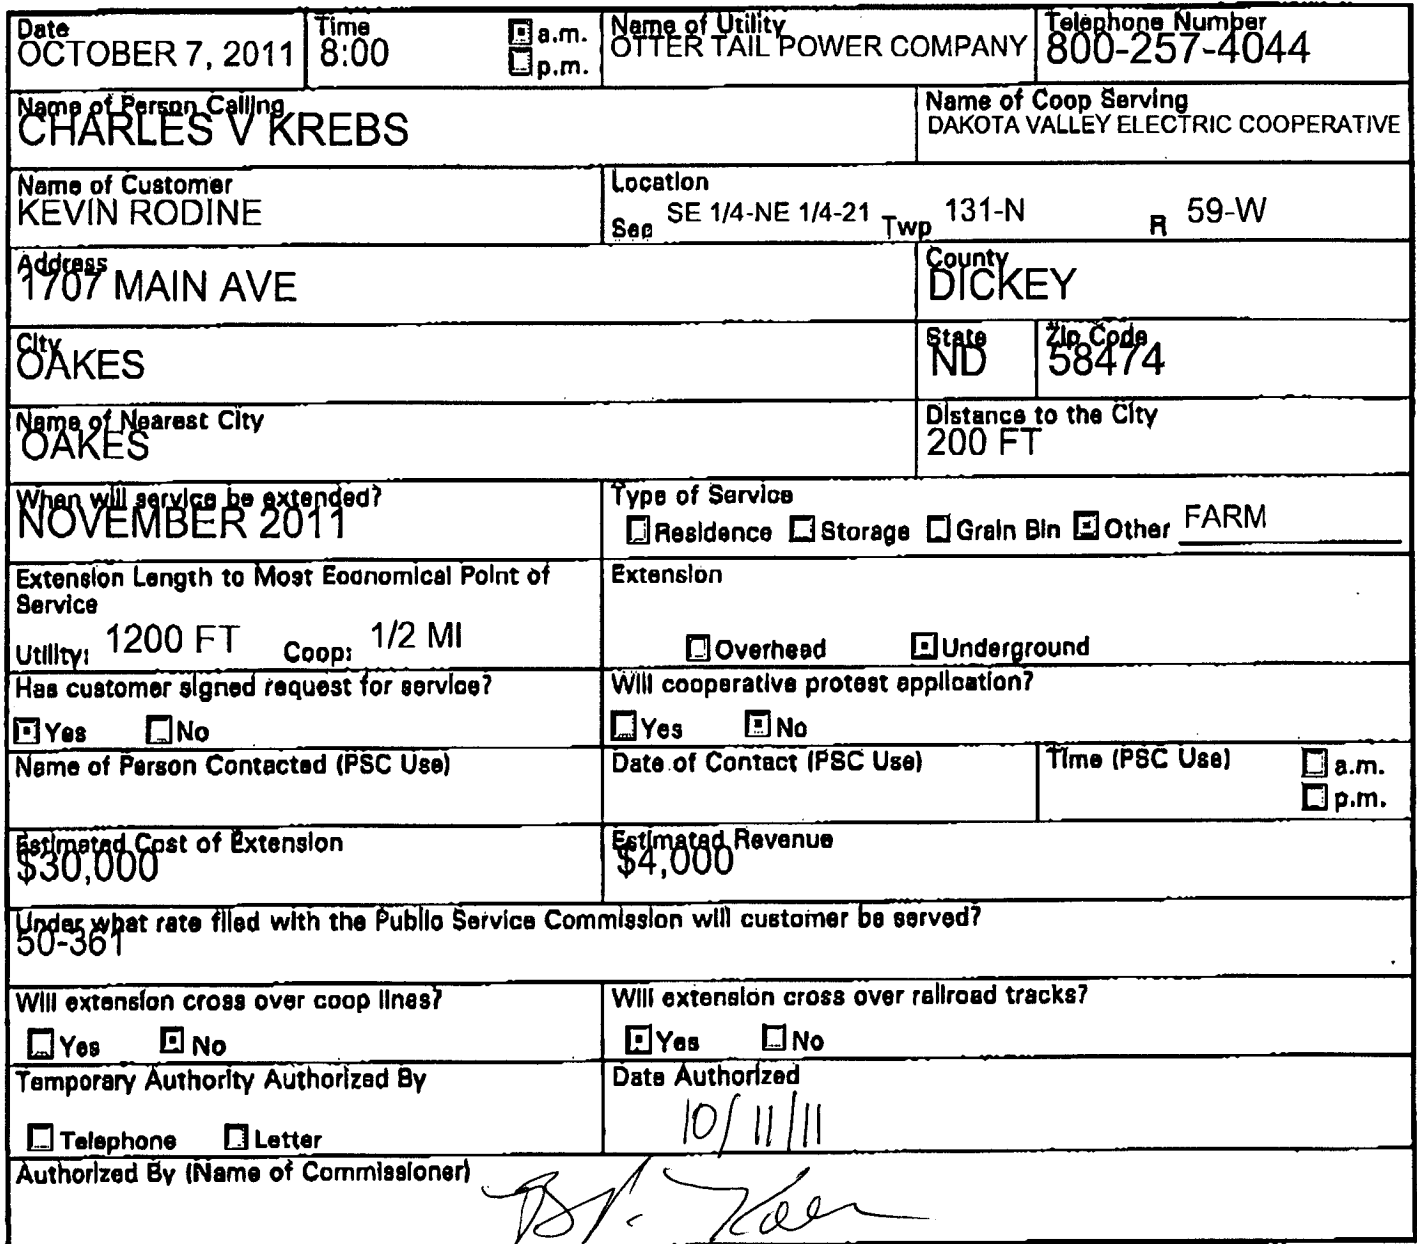 Date
OCTOBER 7, 2011
Time
8:00
a.m.
p.m.
Name of Utility
OTTER TAIL POWER COMPANY
Telephone Number
800-257-4044
Name of Person Calling
CHARLES V KREBS
Name of Coop Serving
DAKOTA VALLEY ELECTRIC COOPERATIVE
Name of Customer
KEVIN RODINE
Location
Sec SE 1/4-NE 1/4-21 Twp 131-N R 59-W
Address
1707 MAIN AVE
County
DICKEY
City
OAKES
State
ND
Zip Code
58474
Name of Nearest City
OAKES
Distance to the City
200 FT
When will service be extended?
NOVEMBER 2011
Type of Service
Residence Storage Grain Bin Other FARM
Extension Length to Most Economical Point of
Service
Utility: 1200 FT Coop: 1/2 MI
Extension
Overhead Underground
Has customer signed request for service?
Yes No
Will cooperative protest application?
Yes No
Name of Person Contacted (PSC Use)
Date of Contact (PSC Use)
Time (PSC Use)
a.m.
p.m.
Estimated Cost of Extension
$30,000
Estimated Revenue
$4,000
Under what rate filed with the Public Service Commission will customer be served?
50-361
Will extension cross over coop lines?
Yes No
Will extension cross over railroad tracks?
Yes No
Temporary Authority Authorized By
Telephone Letter
Date Authorized
10/11/11
Authorized By (Name of Commissioner)